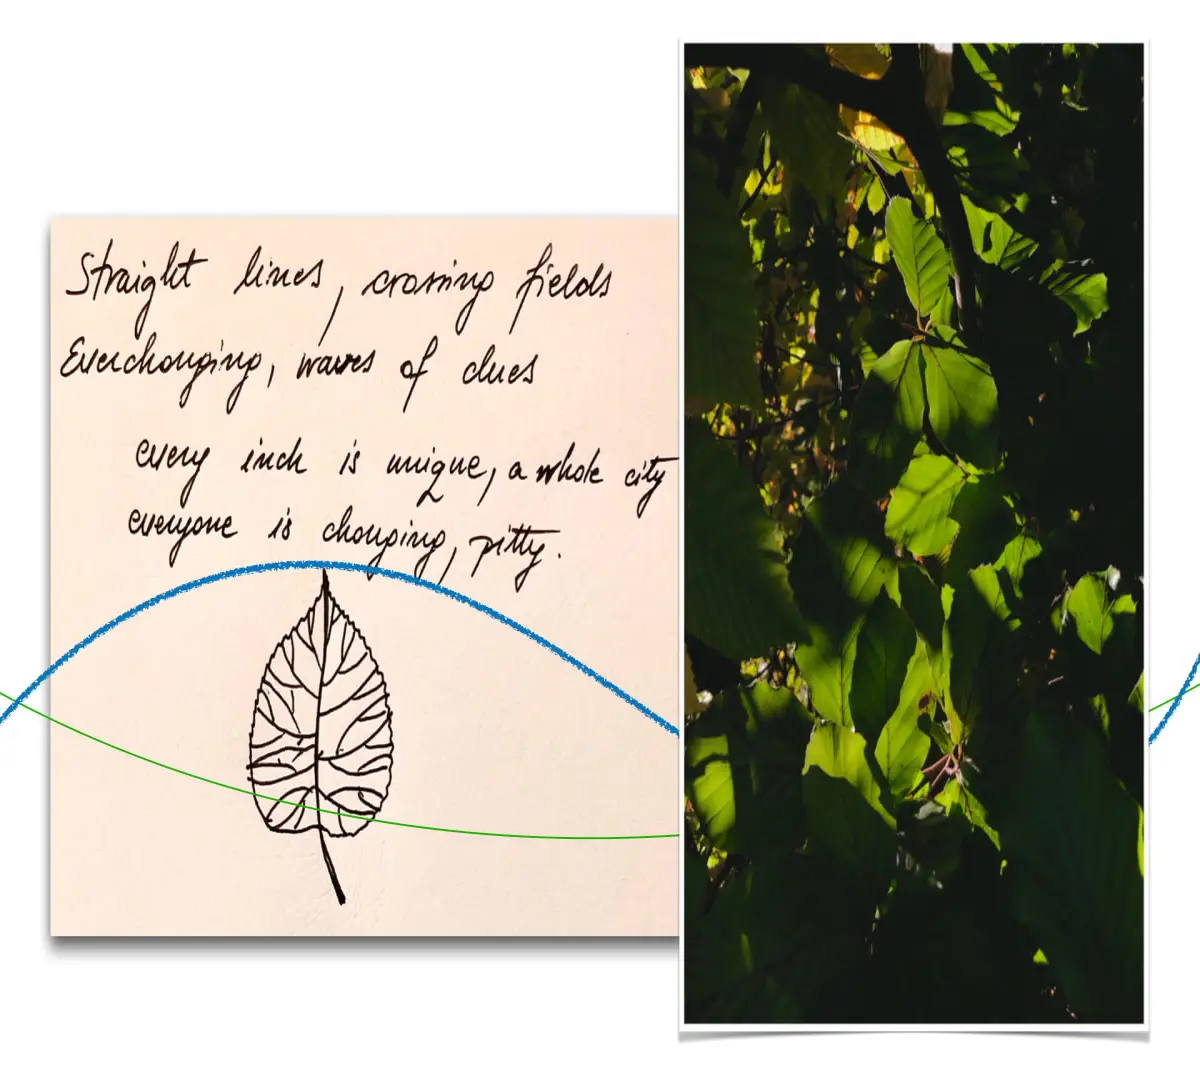 Straight lines, crossing fields
Everchanging, waves of clues
every inch is unique, a whole city
everyone is changing, pitty.